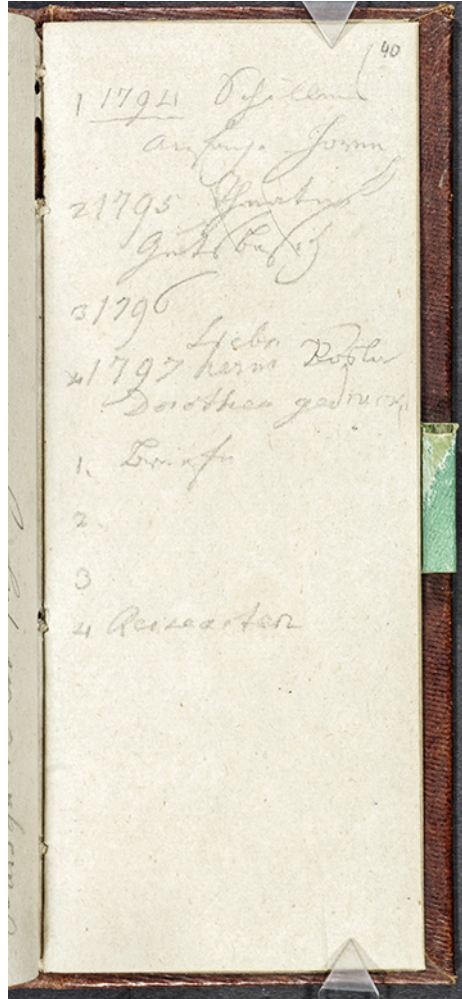 40
1 1794 Schillern
Anfangs Horen
2 1795 Theater
Gutsbesitz
3 1796
Liebe
4 1797 herm
Dorothea gedruckt
1. Briefe
2.
3
4 Reiseacten